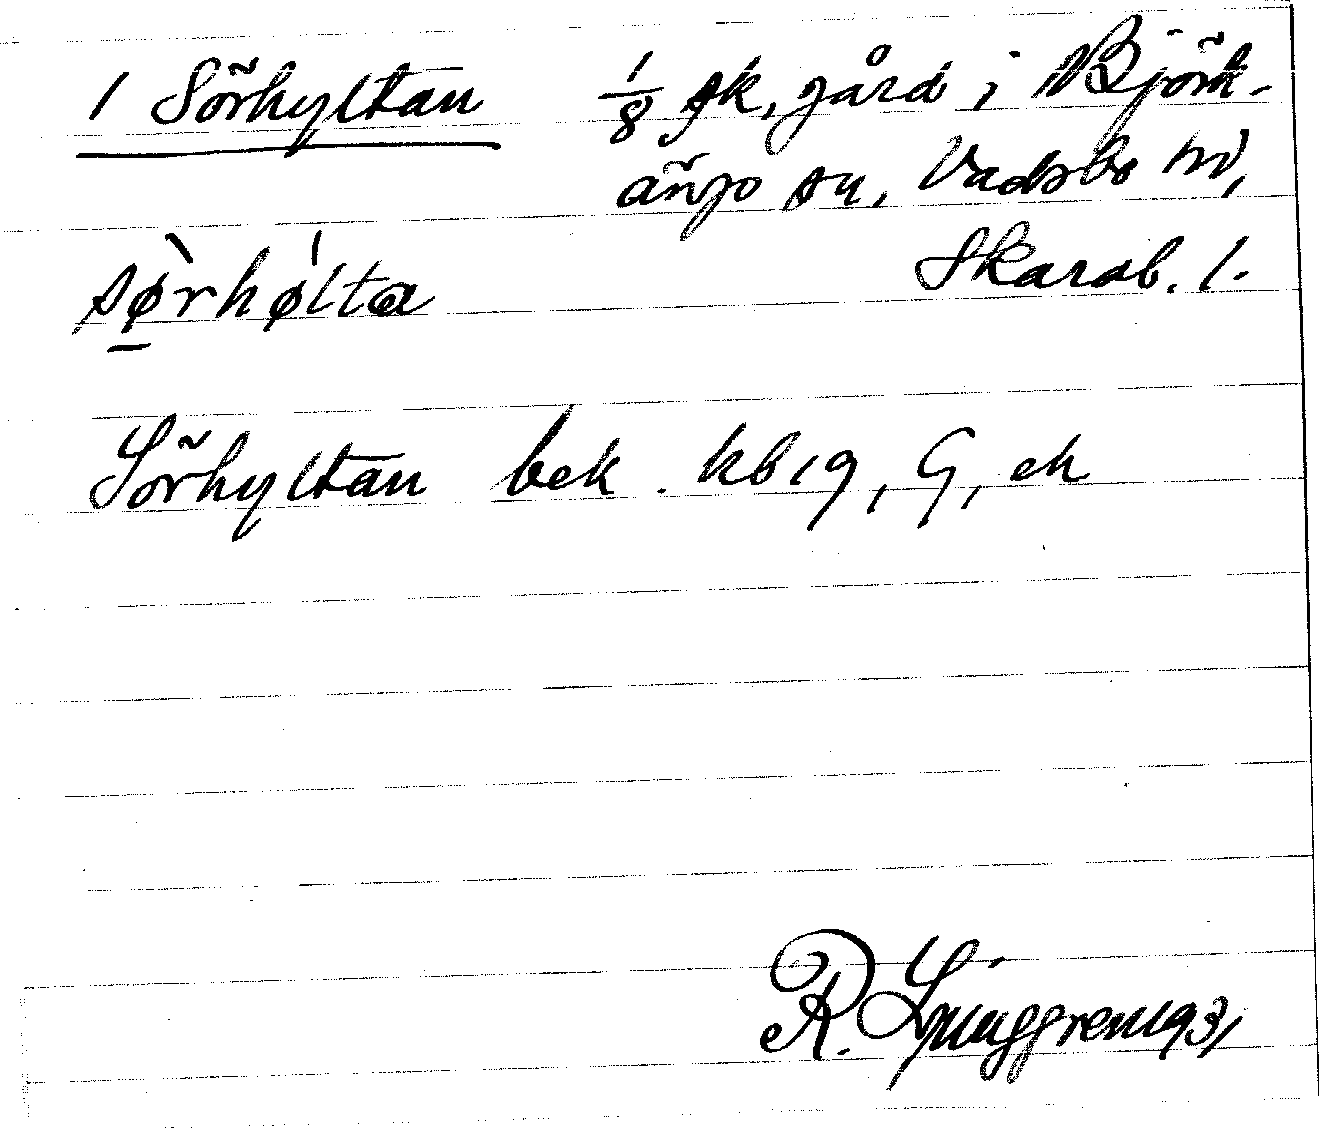 1 Sörhyltan 1/8 sk, gård i Björk-
ängs sn, Vadsbo hd,
Skarab. l.
sø̀rhǿlta
Sörhyltan bek. kb 19, G, ek
R. Ljunggren 1931